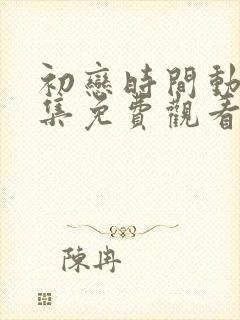 初戀時間動
集免費觀看
陳冉